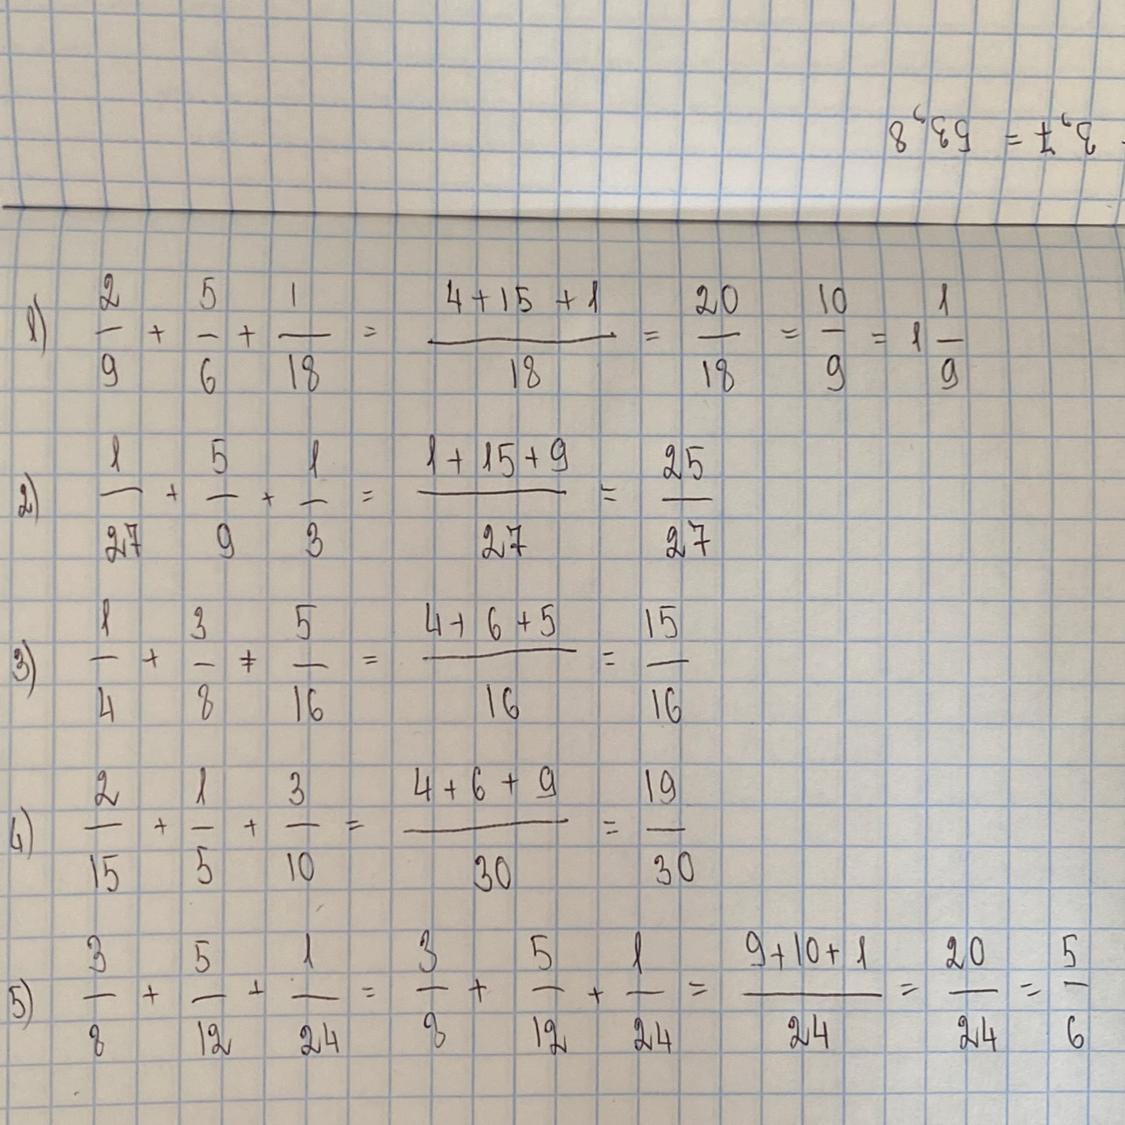 - 3,7 = 53,8
1) 2/9 + 5/6 + 1/18 = (4+15+1)/18 = 20/18 = 10/9 = 1 1/9
2) 1/27 + 5/9 + 1/3 = (1+15+9)/27 = 25/27
3) 1/4 + 3/8 + 5/16 = (4+6+5)/16 = 15/16
4) 2/15 + 1/5 + 3/10 = (4+6+9)/30 = 19/30
5) 3/8 + 5/12 + 1/24 = 3/8 + 5/12 + 1/24 = (9+10+1)/24 = 20/24 = 5/6